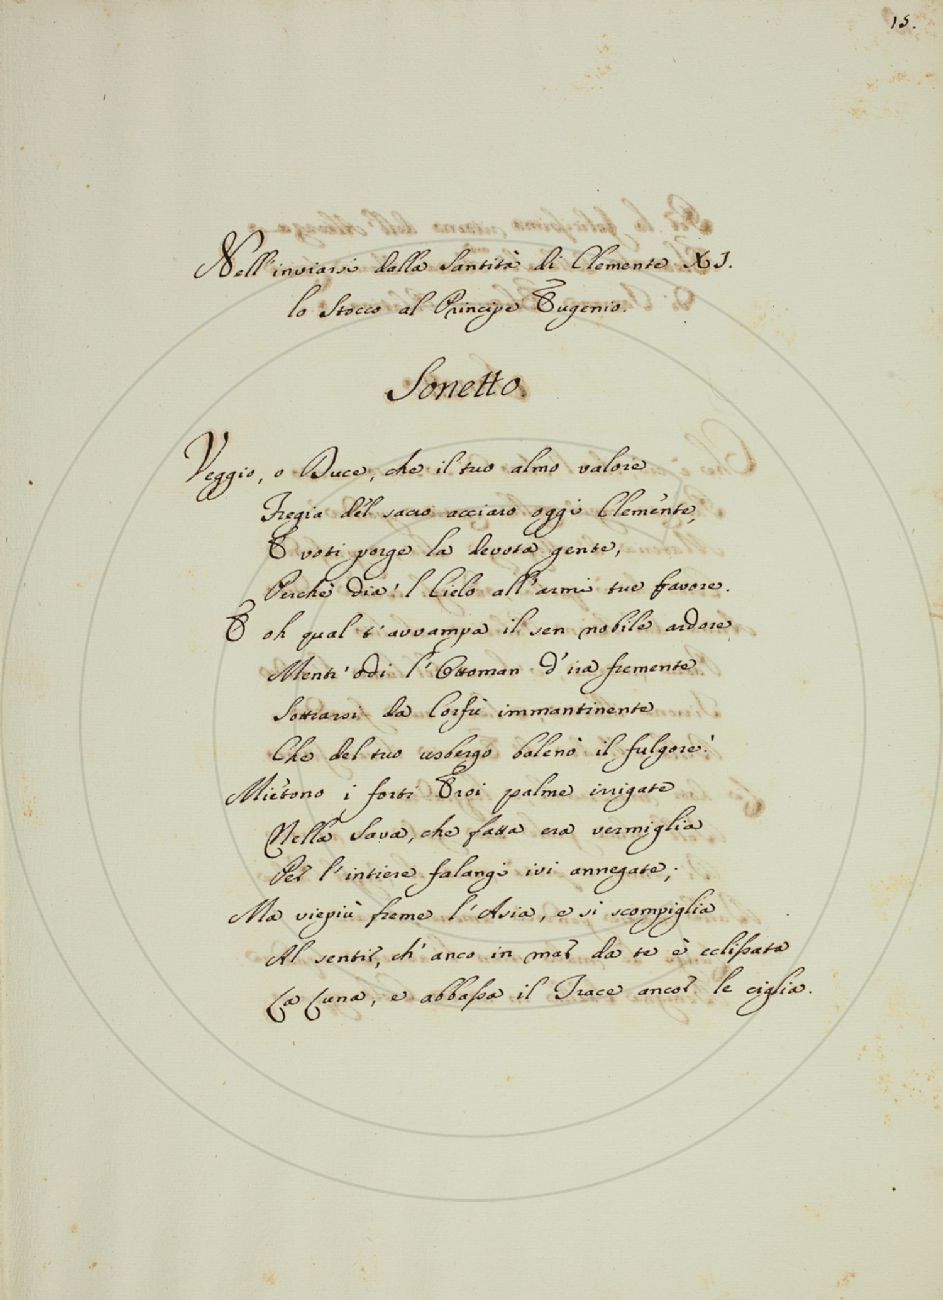 15.
Nell'inviarsi dalla Santità di Clemente XI.
lo Stocco al Principe Eugenio.
Sonetto.
Veggio, o Duce, che il tuo almo valore
Fregia del sacro acciaro oggi Clemente,
E voti porge la devota gente,
Perchè dia'l Cielo all'armi tue favore.
E oh qual t'avvampa il sen nobile ardore
Mentr'odi l'Ottoman d'ira fremente
Sottrarsi da Corfù immantinente
Che del tuo usbergo balenò il fulgore!
Miètono i forti Eroi palme irrigate
Nella Sava, che fatta era vermiglia
Per l'intiere falangi ivi annegate;
Ma viepiù freme l'Asia, e si scompiglia
Al sentir, ch'anco in mar da te è eclissata
La Luna, e abbassa il Trace ancor le ciglia.